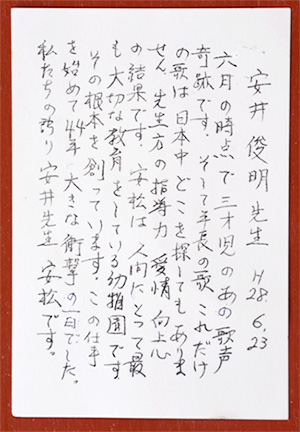 安井俊明先生 H28.6.23
六月の時点で三才児のあの歌声
奇跡です。そして年長の歌 これだけ
の歌は日本中どこを探してもありま
せん。先生方の指導力 愛情 向上心
の結果です。安松は人間にとって最
も大切な教育をしている幼稚園です
その根本を創っています。この仕事
を始めて44年 大きな衝撃の一日でした。
私たちの誇り 安井先生 安松です。